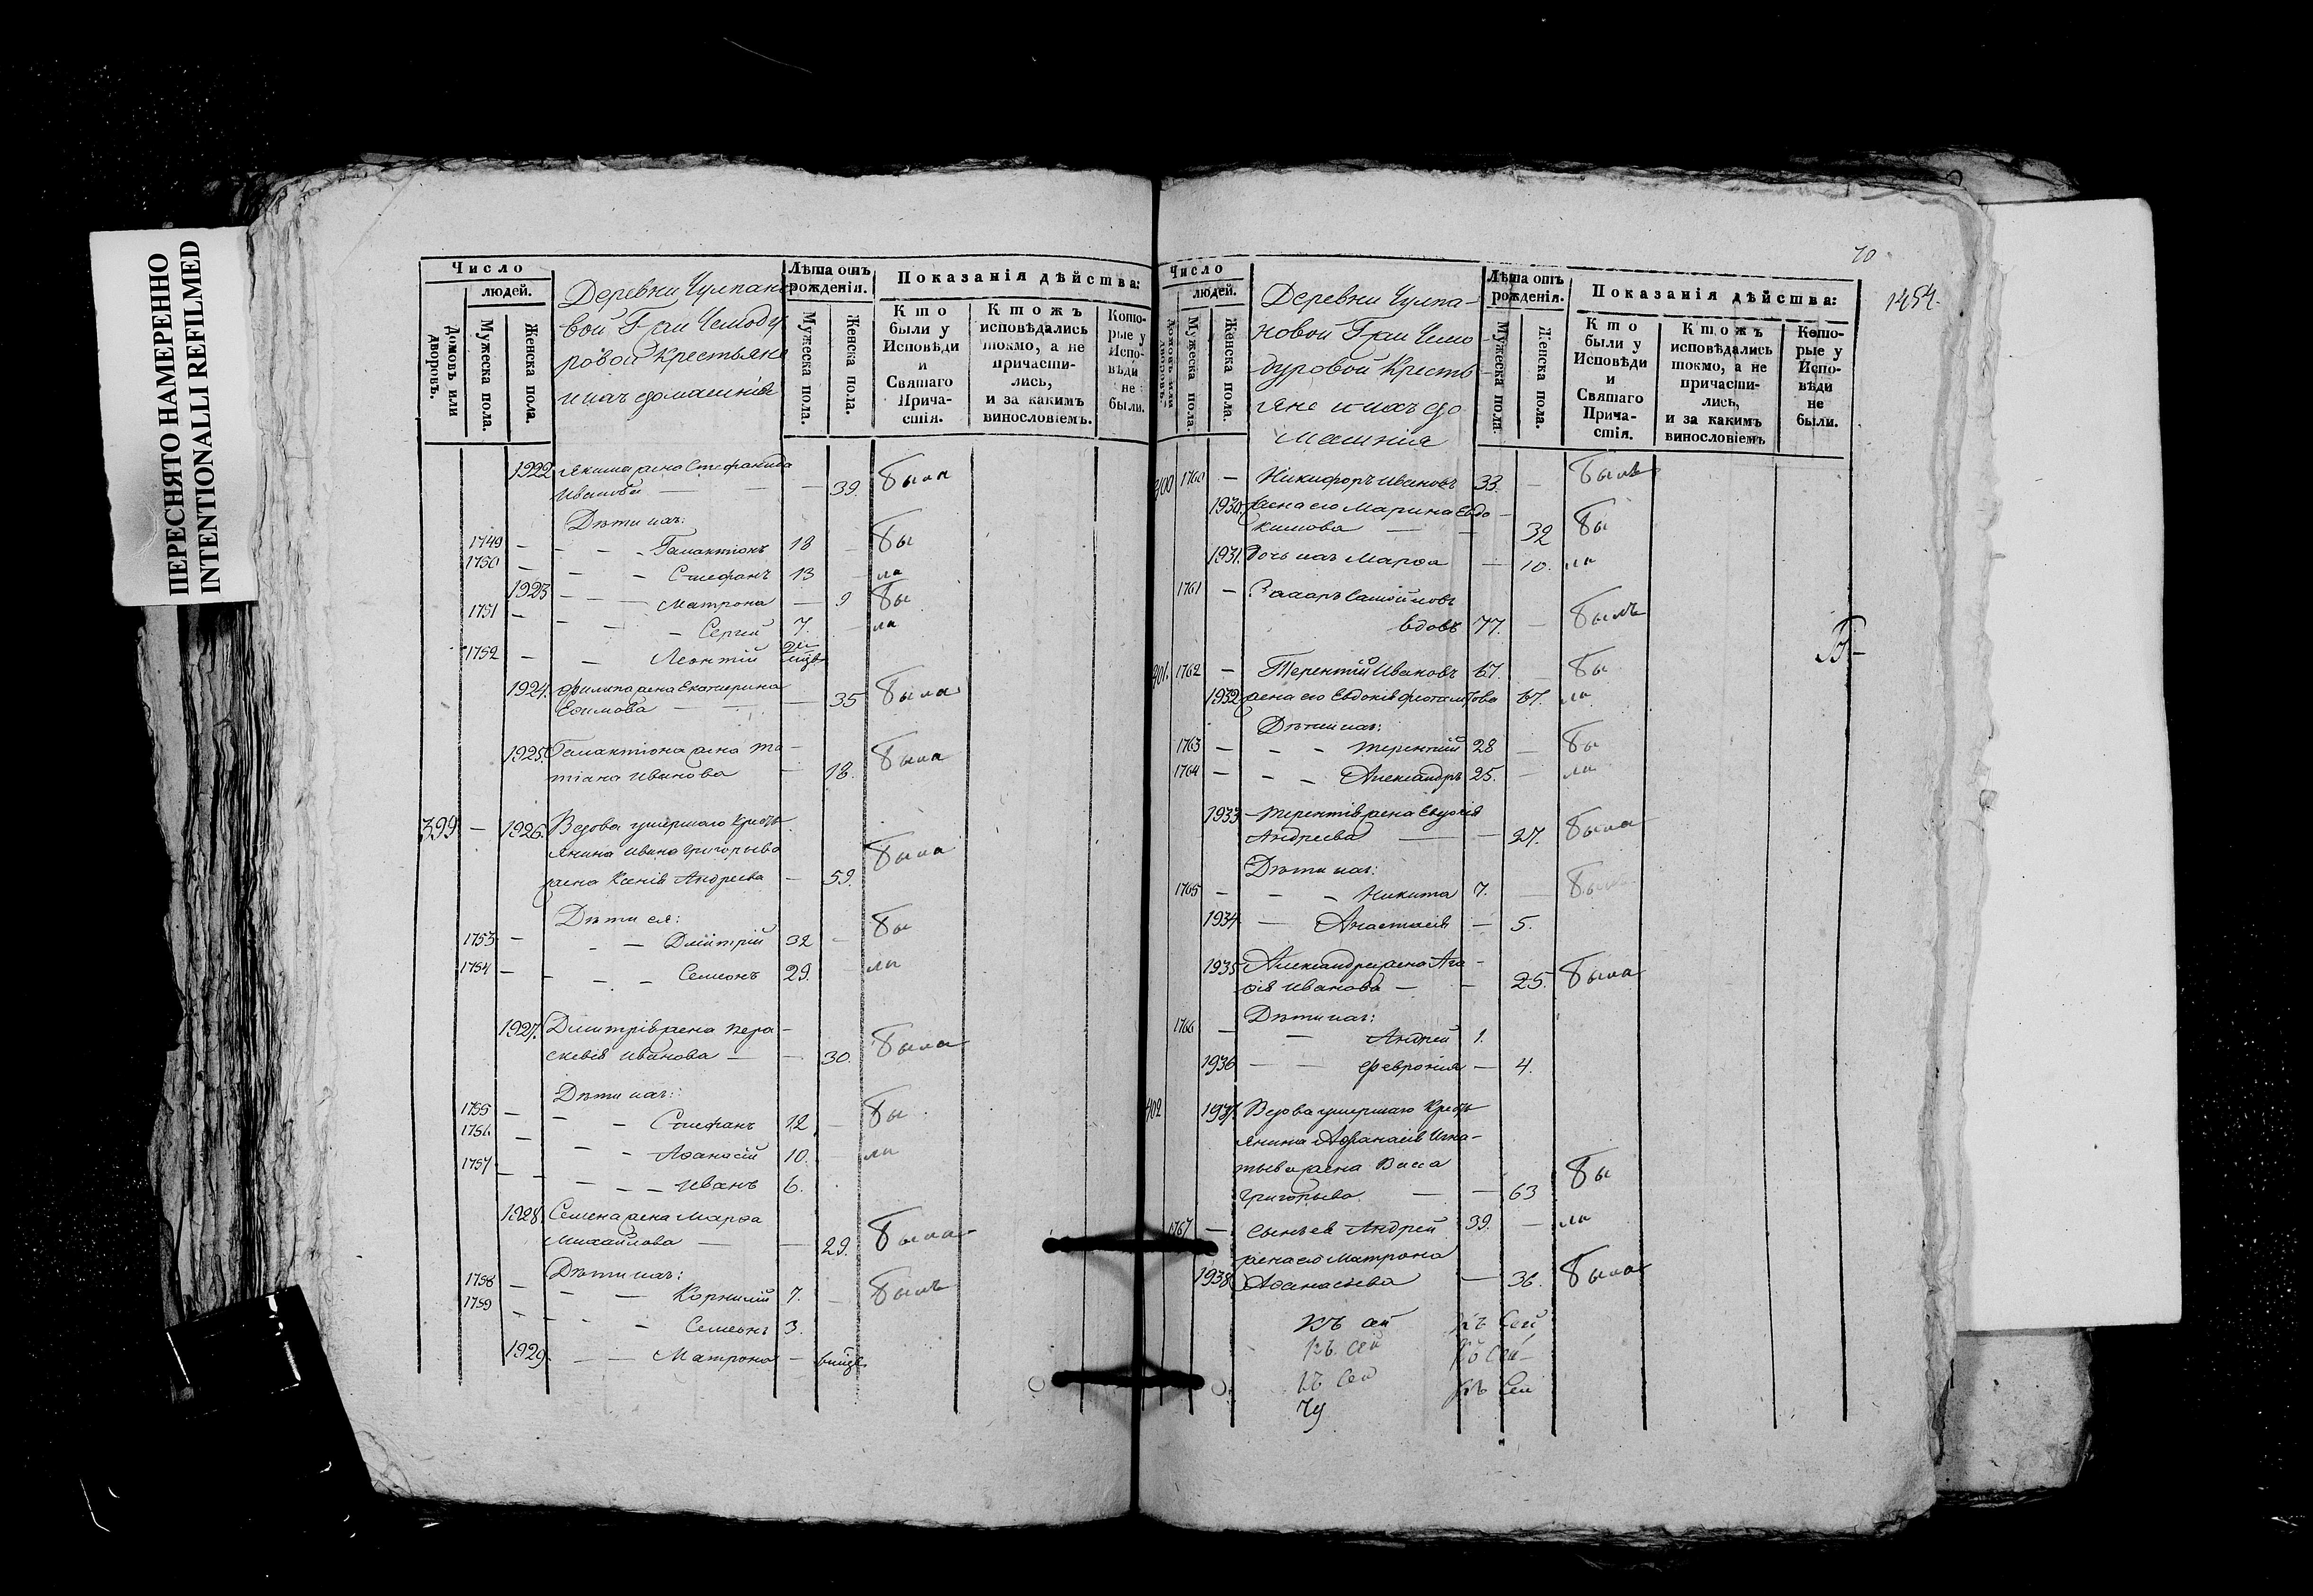 ПЕРЕСНЯТО НАМЕРЕННО
INTENTIONALLI REFILMED
Число
людей.
Домовъ или дворовъ.
Мужеска пола.
Женска пола.
Деревни Чулпано
вой Гжи Чемоду
ровой Крестьяне
и ихъ домашнія
Лѣта отъ рожденія.
Мужеска пола.
Женска пола.
Показанія дѣйства:
Кто были у Исповѣди и Святаго Причастія.
Ктожъ исповѣдались токмо, а не причастились, и за какимъ винословіемъ.
Которые у Исповѣди не были.
1922 Якима жена Стефанида
Иванова — 39. Была
Дѣти ихъ:
1749 — Галактіонъ 18 — Бы
1750 — Стефанъ 13 — ли
1923 — Матрона — 9 Бы
1751 — Сергій 7. — ли
1752 — Леонтій
1924. Филипа жена Екатерина
Ефимова — 35 Была
1925. Галактіона жена Та-
тіана Иванова — 18. Была
399 — 1926. Вдова умершаго Кресть
янина Ивана Григорьева
жена Ксенія Андреева — 59. Была
Дѣти ея:
1753 — Дмитрій 32 — Бы
1754 — Семіонъ 29. — ли
1927. Дмитрія жена Пера-
скевія Иванова — 30. Была
Дѣти ихъ:
1755 — Стефанъ 12 — Бы
1756 — Аѳанасій 10. ли
1757 — Иванъ 6.
1928. Семена жена Марѳа
Михайлова — 29. Была
Дѣти ихъ:
1758 — Корнилій 7. — Былъ
1759 — Семіонъ 3.
1929 — Матрона —
70
1454.
Число
людей.
Домовъ или дворовъ.
Мужеска пола.
Женска пола.
Деревни Чулпа-
новой Гжи Чемо
дуровой Кресть
яне и ихъ до
машнія
Лѣта отъ рожденія.
Мужеска пола.
Женска пола.
Показанія дѣйства:
Кто были у Исповѣди и Святаго Причастія.
Ктожъ исповѣдались токмо, а не причастились, и за какимъ винословіемъ
Которые у Исповѣди не были.
400 1760 — Никифоръ Ивановъ 33. — Былъ
1930. жена его Марина Евдо-
кимова — 32 Бы
1931. Дочь ихъ Марѳа — 10. ли
1761 — Захаръ Самойловъ
вдовъ 77. — Былъ
401. 1762 — Терентій Ивановъ 67. — Бы
1932 жена его Евдокія 67. ли
Дѣти ихъ:
1763 — Терентій 28 — Бы
1764 — Александръ 25. — ли
1933 Терентія жена
Андреева — 27. Была
Дѣти ихъ:
1765 — Никита 7. — Былъ
1934 — Анастасія — 5.
1935 Александра жена Ага-
ѳія Иванова — 25. Была
Дѣти ихъ:
1766 — Андрей 1.
1936 — Февронія — 4.
402 1937. Вдова умершаго Кресть
янина Афанасія Игна-
тьева жена Васса
Григорьева — 63 Бы
1767 — Сынъ ея Андрей 39. — ли
жена его Матрона
1938. Аѳанасьева — 36. Была
къ сей къ Сей
къ сей
къ сей къ Сей